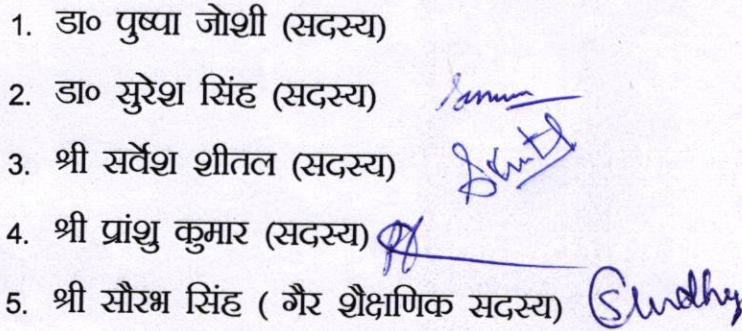 1. डा० पुष्पा जोशी (सदस्य)
2. डा० सुरेश सिंह (सदस्य)
3. श्री सर्वेश शीतल (सदस्य)
4. श्री प्रांशु कुमार (सदस्य)
5. श्री सौरभ सिंह ( गैर शैक्षणिक सदस्य)